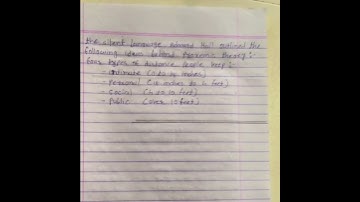 the silent language edward Hall outlined the
following ideas behind Proxemic theory :-
four types of distance people keep :-
- intimate (      inches)
- Personal (     inches to 4 feet)
- Social (4 to 12 feet)
- Public (over 12 feet)